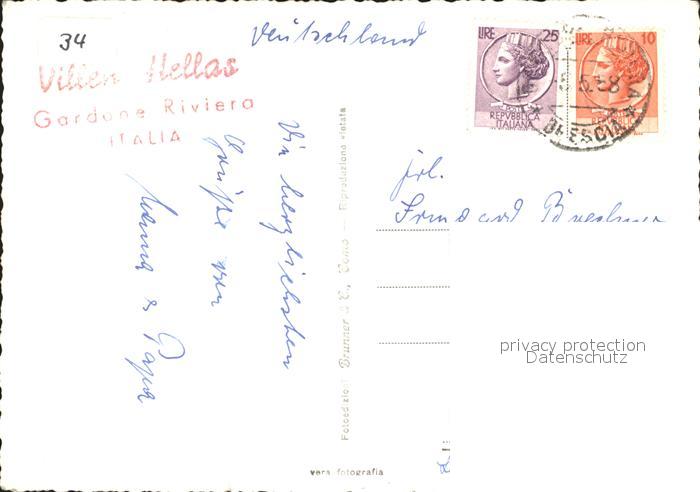 34
Deutschland
Villen Hellas
Gardone Riviera
ITALIA
Die herzlichsten
Grüße von
Mama & Papa
Fotoedizioni Brunner & C., Como — Riproduzione vietata
vera fotografia
LIRE 25
REPVBBLICA
ITALIANA
LIRE 10
BRESCIA
Frl.
privacy protection
Datenschutz